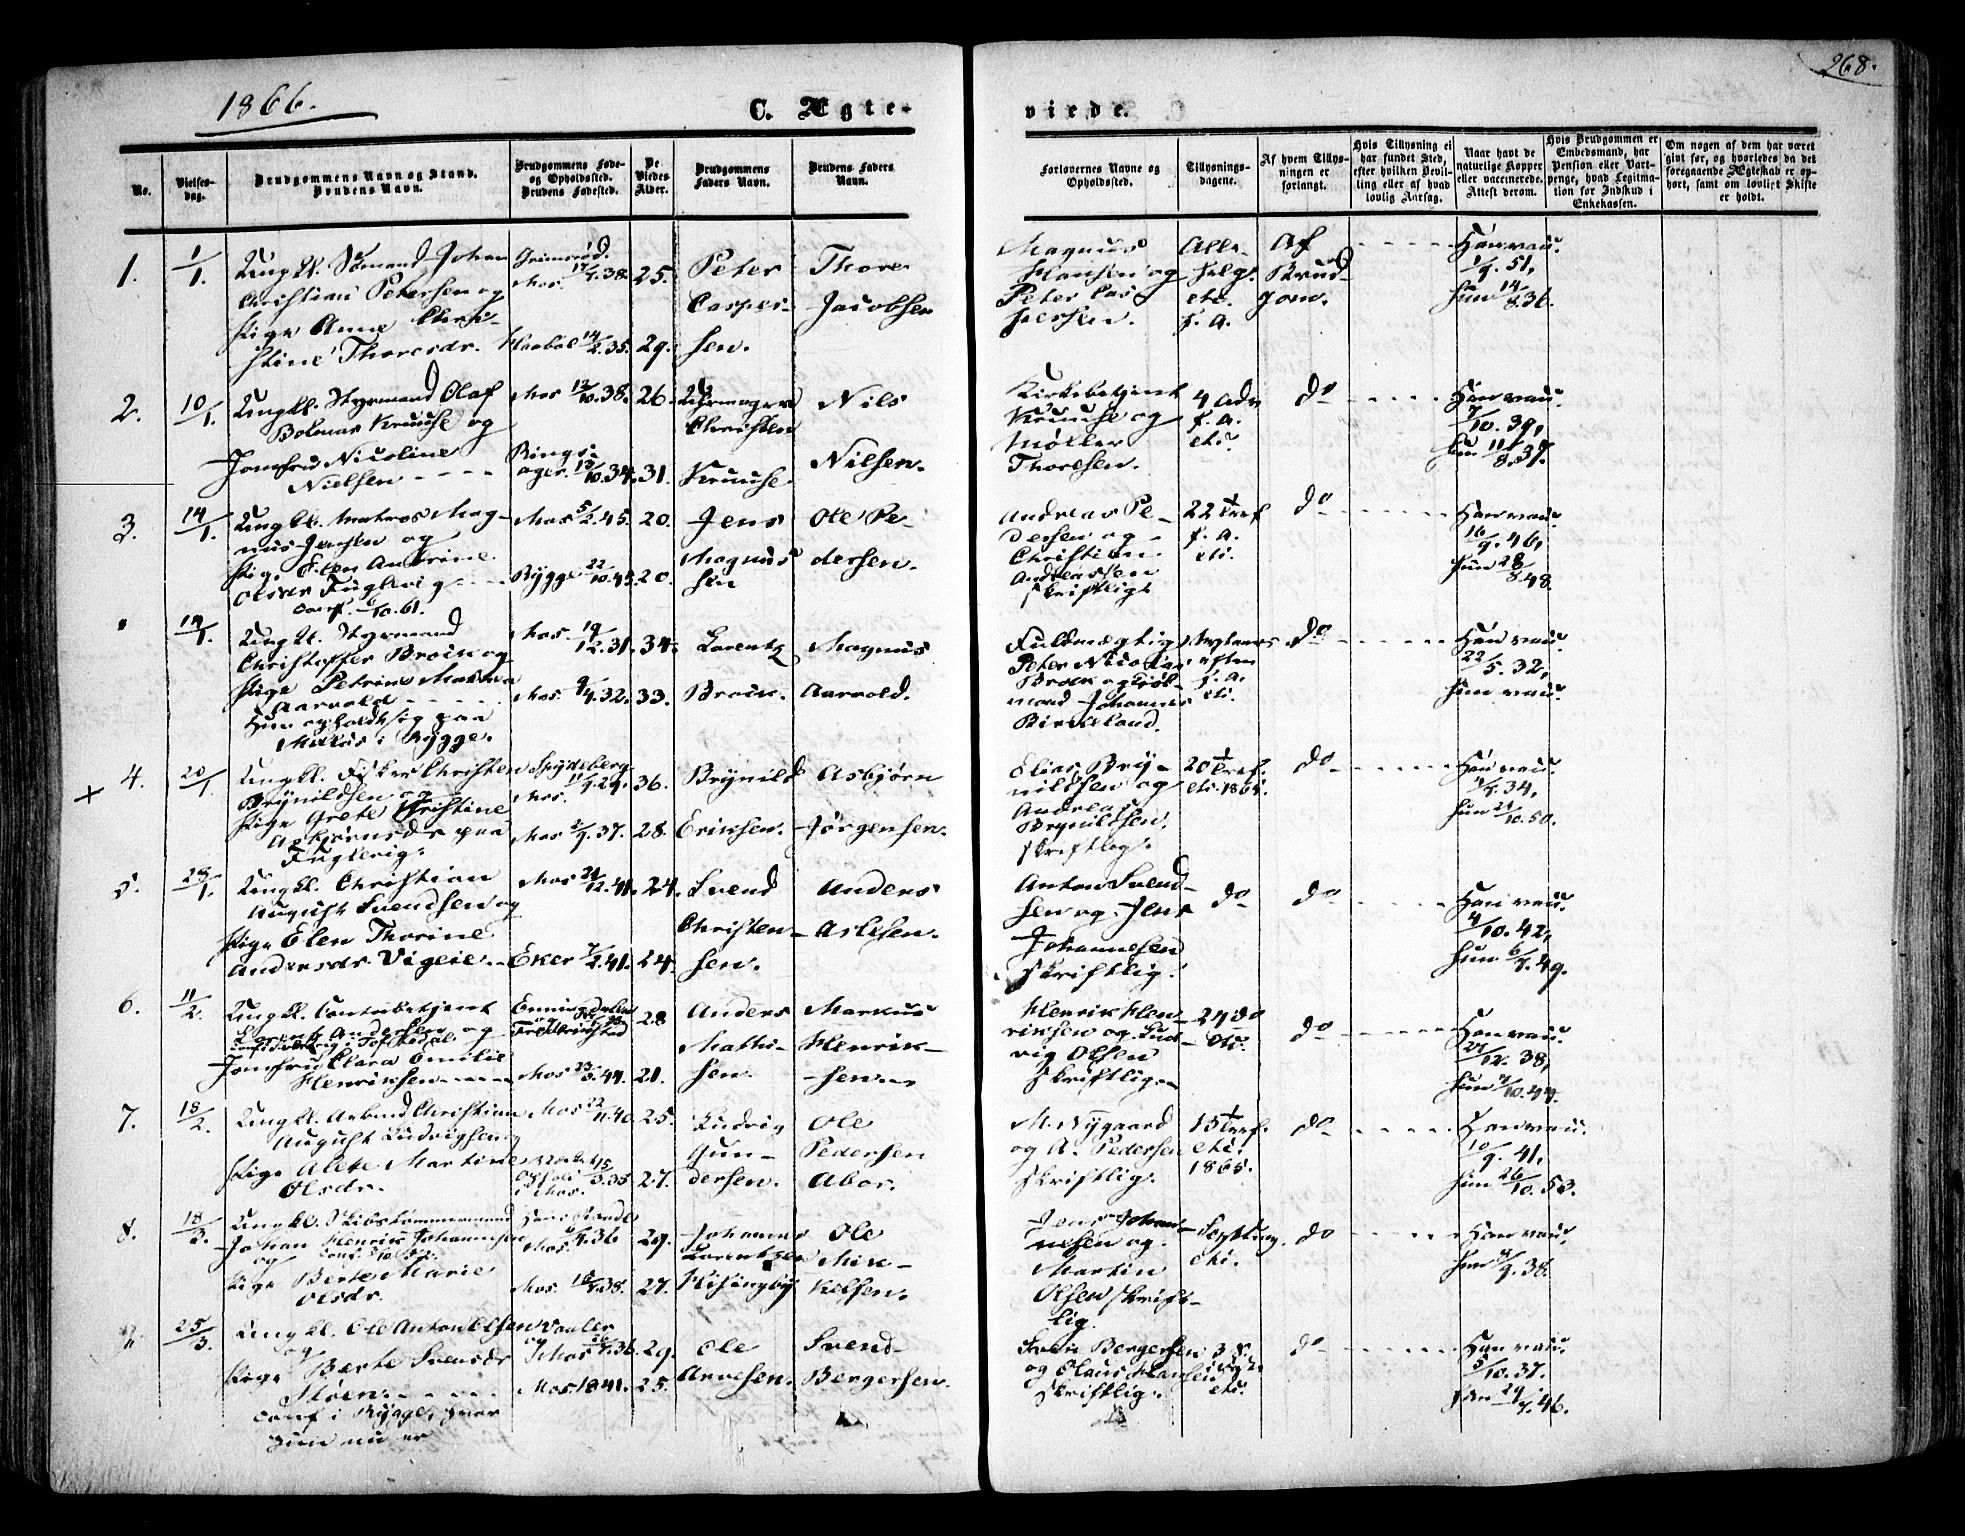 1866.
C. Ægte-
virde.
268.
No.
Vielses-
dag.
Brudgommens Navn og Stand.
Brudens Navn.
Brudgommens Føde-
og Opholdsted.
Brudens Fødested.
De
Viedes
Alder.
Brudgommens
Faders Navn.
Brudens Faders
Navn.
Forlovernes Navne og
Opholdsted.
Tillysnings-
dagene.
Af hvem Tillys-
ningen er
forlangt.
Hvis Tillysning ei
har fundet Sted,
efter hvilken Bevil-
ling eller af hvad
lovlig Aarsag.
Naar havt de
naturlige Kopper
eller vaccinerede.
Attest derom.
Hvis Brudgommen er
Embedsmand, har
Pension eller Vart-
penge, hvad Legitima-
tion for Indskud i
Enkekassen.
Om nogen af dem har været
gift før, og hvorledes da det
foregaaende Ægteskab er op-
hørt, samt om lovligt Skifte
er holdt.
1.
1/1.
Ungkl. Sømand Johan
Christian Petersen og
Pige Anne Chri-
stine Thoresdr.
Grimsrød.
Mos. 17/4.38.
14/2.35.
25.
29.
Peter
Casper-
sen.
Thore
Jacobsen
Magnus
Hansen og
Peter Cas-
persen.
Alle
helg.
etc.
f. A.
Af
Brud
gom.
Han vac.
1/9. 51,
hun 14/8.36.
2.
10/1.
Ungkl. Styrmand Olaf
Kruuse og
Jomfru Nicoline
Nielsen
Mos 12/10.38.
Rings-
ager. 13/10.34.
26.
31.
Uhrmager
Christen
Kruuse.
Nils
Nilsen.
Kirkebetjent
Kruuse og
Møller
Thoresen.
4 Adv
f. A.
etc.
do
Han vac.
7/10. 39,
hun 11/8.37.
3.
14/1.
Ungkl. Matros Mag-
nus Jensen og
Pige Elen Andrine
Olsdr Fuglevig
conf. 10.61.
Mos 5/2.45.
Rygge 22/10.45.
20.
20.
Jens
Magnus
sen
Ole Pe-
dersen.
Andreas Pe-
dersen og
Christian
Andreassen
skriftligt
22 Tref
f. A.
etc.
do
Han vac.
16/9. 46,
hun 28/8.48.
"
14/1.
Ungkl. Styrmand
Christoffer Brock og
Pige Petrine
Aarvold
Hun opholdt sig paa
i Rygge.
Mos 19/12.31.
Mos. 9/4.32.
34.
33.
Lorentz
Brock.
Magnus
Aarvold.
Fuldmægtig
Peter Nicolai
Brock og
mand Johannes
Birkeland.
aften
f. A.
etc.
do
Han vac.
22/5. 32,
hun vac.
4.
20/1.
Ungkl. Fisker Christen
Brynildsen og
Pige Grete Christine
Asbjørnsdr paa
Fuglevig.
Spydeberg
Mos. 11/9.29.
Mos 2/9.37.
36.
28.
Brynild
Eriksen.
Asbjørn
Jørgensen.
Elias Bry-
nildsen og
Andreas
Brynildsen.
skriftlig.
20 Tref.
etc. 1865.
do
Han vac.
34,
hun 21/10.50.
5.
28/1.
Ungkl. Christian
August Svendsen og
Pige Elen Thorine
Andersdr. Vigeie
Mos 21/12.41.
Eker 7/2.41.
24.
24.
Svend
Christen-
sen.
Anders
Aslesen.
Anton Svend-
sen og Jens
Johannesen
skriftlig.
do
do
Han vac.
4/10. 42,
hun 6/7.49.
6.
11/2.
Ungkl. Contorbetjent
Andersen og
Jomfru Clara Emilie
Henriksen
Enningdalen
Fredrikstad
Mos 23/5.44.
28
21.
Anders
Mathi-
sen.
Markus
Henrik-
sen
Henrik Hen-
riksen og Lud-
vig Olsen
skriftlig
24 do
etc.
do
Han vac.
27/12. 38,
hun 7/10.44.
7.
18/2.
Ungkl. Arbmd Christian
August Ludvigsen
Pige Alete Martine
Olsdr.
Mos 22/11.40.
i Mos.
25.
27.
Ludvig
Gun-
dersen.
Ole
Pedersen
Abor.
M. Nygaard
og A. Pedersen
skriftlig.
15 Tref.
etc.
1865.
do
Han vac.
10/9. 41,
hun 26/10. 53.
8.
18/3.
Ungkl. Skibstømmermand
Johan Henrik Johannesen
og
Pige Berte Marie
Olsdr.
Mos. 36
Mos. 18/4.38.
29.
27.
Johannes
Lorentzen
Ole
Mik-
kelsen.
Jens Johan-
nesen og
Martin
Olsen skrift-
lig.
etc.
do
Han vac.
hun 9.38.
25/3.
Ungkl. Ole Anton Olsen
og
Pige Berte Svensdr
Moen.
conf i Rygge, hvor
hun nu er
Vaaler
og
Mos 26/4.36.
Mos. 1841.
29.
25.
Ole
Arvesen.
Svend
Bergersen.
Svein Bergersen
og Olaus Hansen
skriftlig.
etc.
do
Han vac.
5/10. 37.
hun 29/7.46.